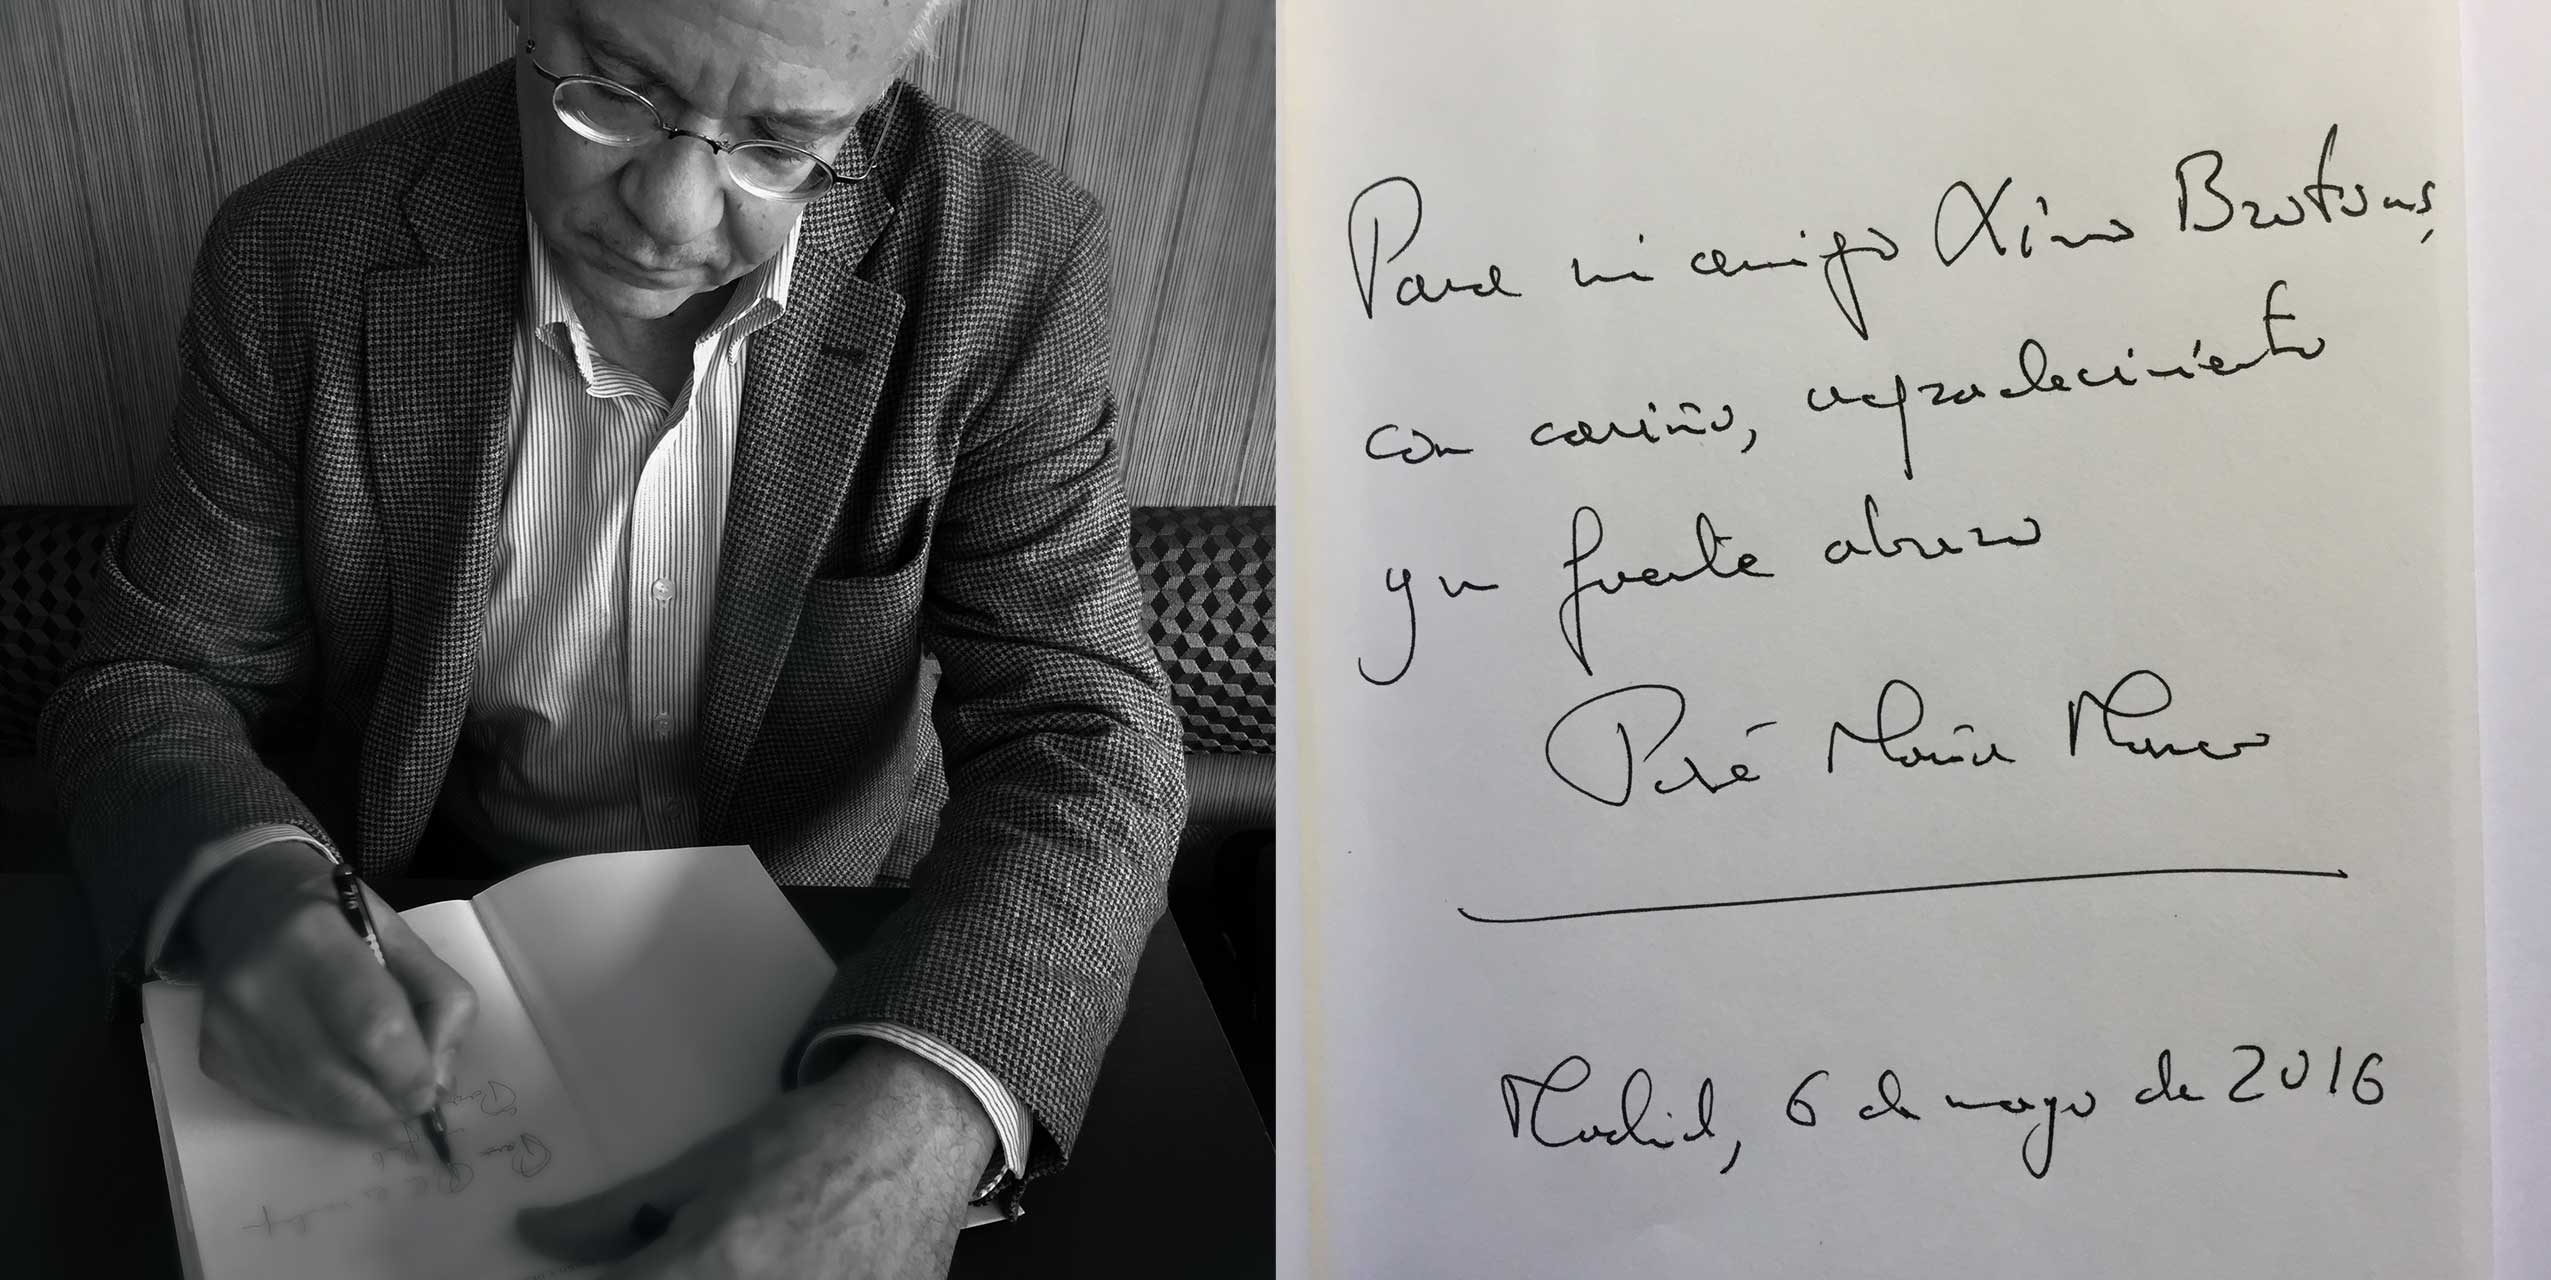 Para mi amigo Ximo Brotons,
con cariño, agradecimiento
y un fuerte abrazo
José María Marco
Madrid, 6 de mayo de 2016